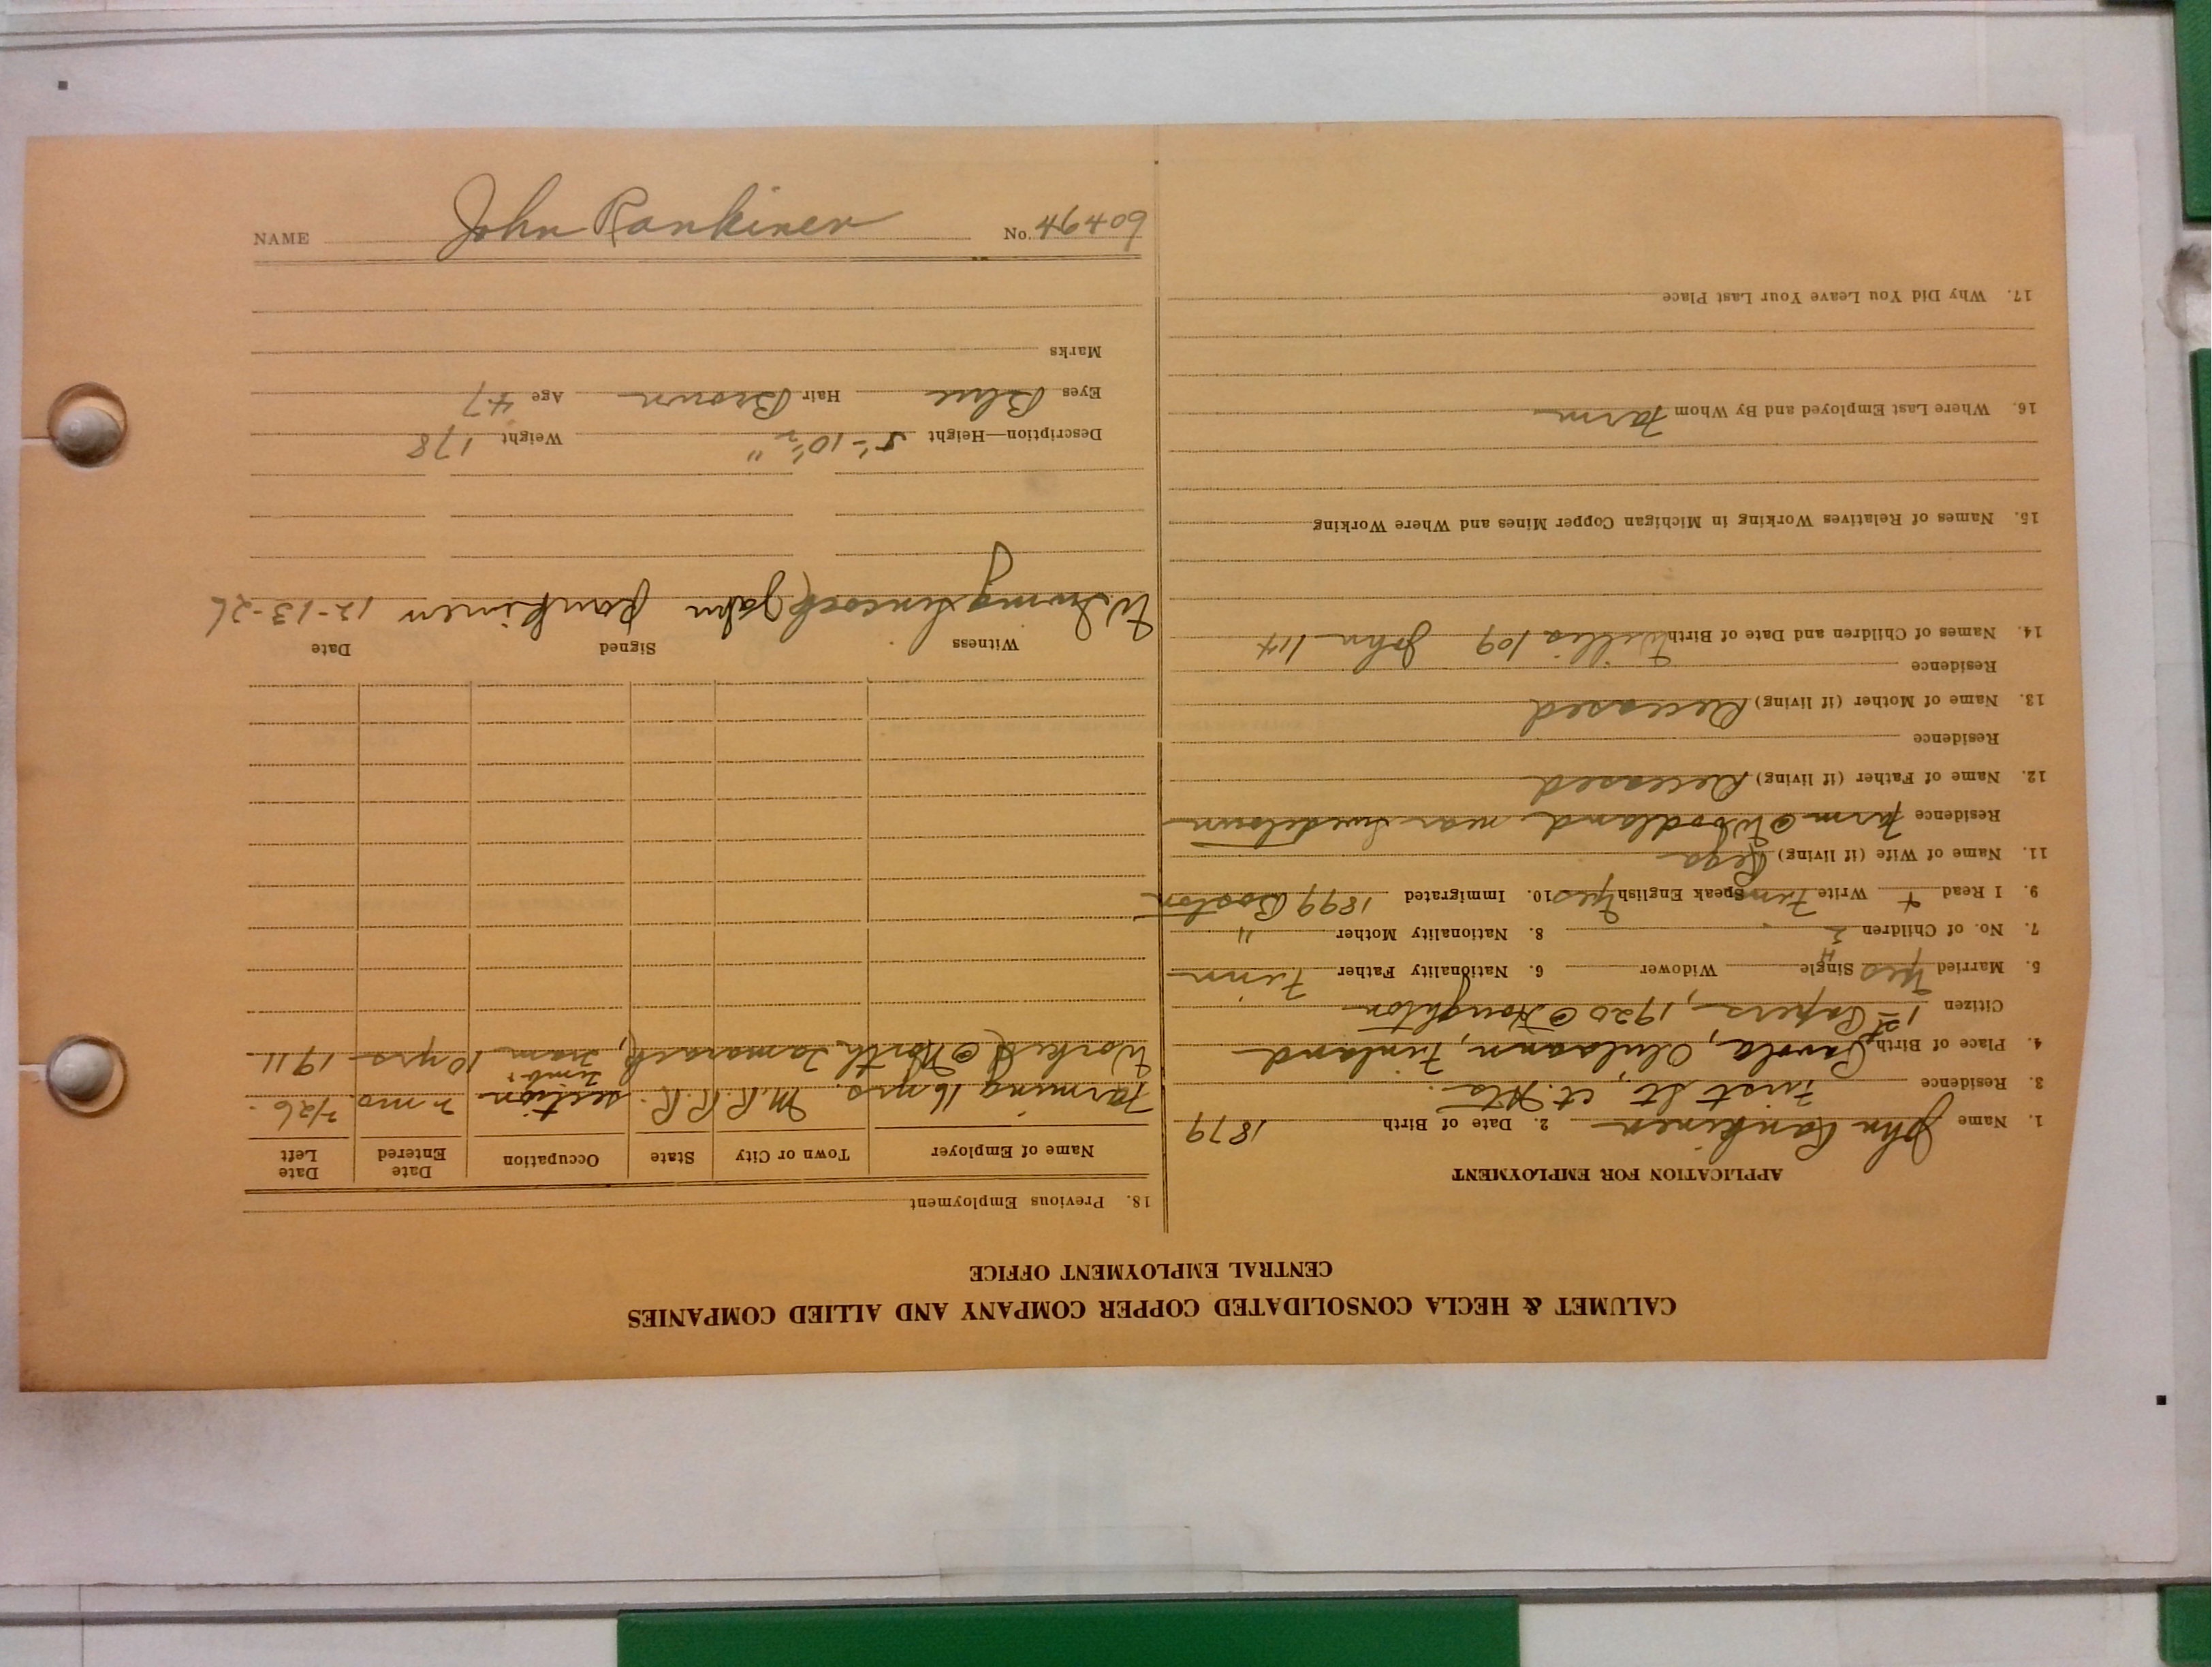 CALUMET & HECLA CONSOLIDATED COPPER COMPANY AND ALLIED COMPANIES
CENTRAL EMPLOYMENT OFFICE
APPLICATION FOR EMPLOYMENT
1. Name John Rankinen 2. Date of Birth 1879
3. Residence First St, Ct. Hts.
4. Place of Birth Pavola, Oulunn, Finland
Citizen 1st Papers, 1920 @ Houghton
5. Married Yes Single Widower 6. Nationality Father Finn
7. No. of Children 2 8. Nationality Mother "
9. I Read + Write Finn Speak English Yes 10. Immigrated 1899 Boston
11. Name of Wife (if living)
Residence Farm @ Woodland near Swedetown
12. Name of Father (if living) Deceased
Residence
13. Name of Mother (if living) Deceased
Residence
14. Names of Children and Date of Birth 109 John 114
15. Names of Relatives Working in Michigan Copper Mines and Where Working
16. Where Last Employed and By Whom Farm
17. Why Did You Leave Your Last Place
18. Previous Employment
Name of Employer Town or City State Occupation Date Entered Date Left
Farming 16 yrs. M.R.R.R. section 2 mo. 7/26.
Worked @ North Tamarack, tram timbr 10 yrs 1911
Witness Signed Date
John Rankinen 12-13-26
Description—Height 5'-10½" Weight 178
Eyes Blue Hair Brown Age 47
Marks
NAME John Rankinen No. 46409